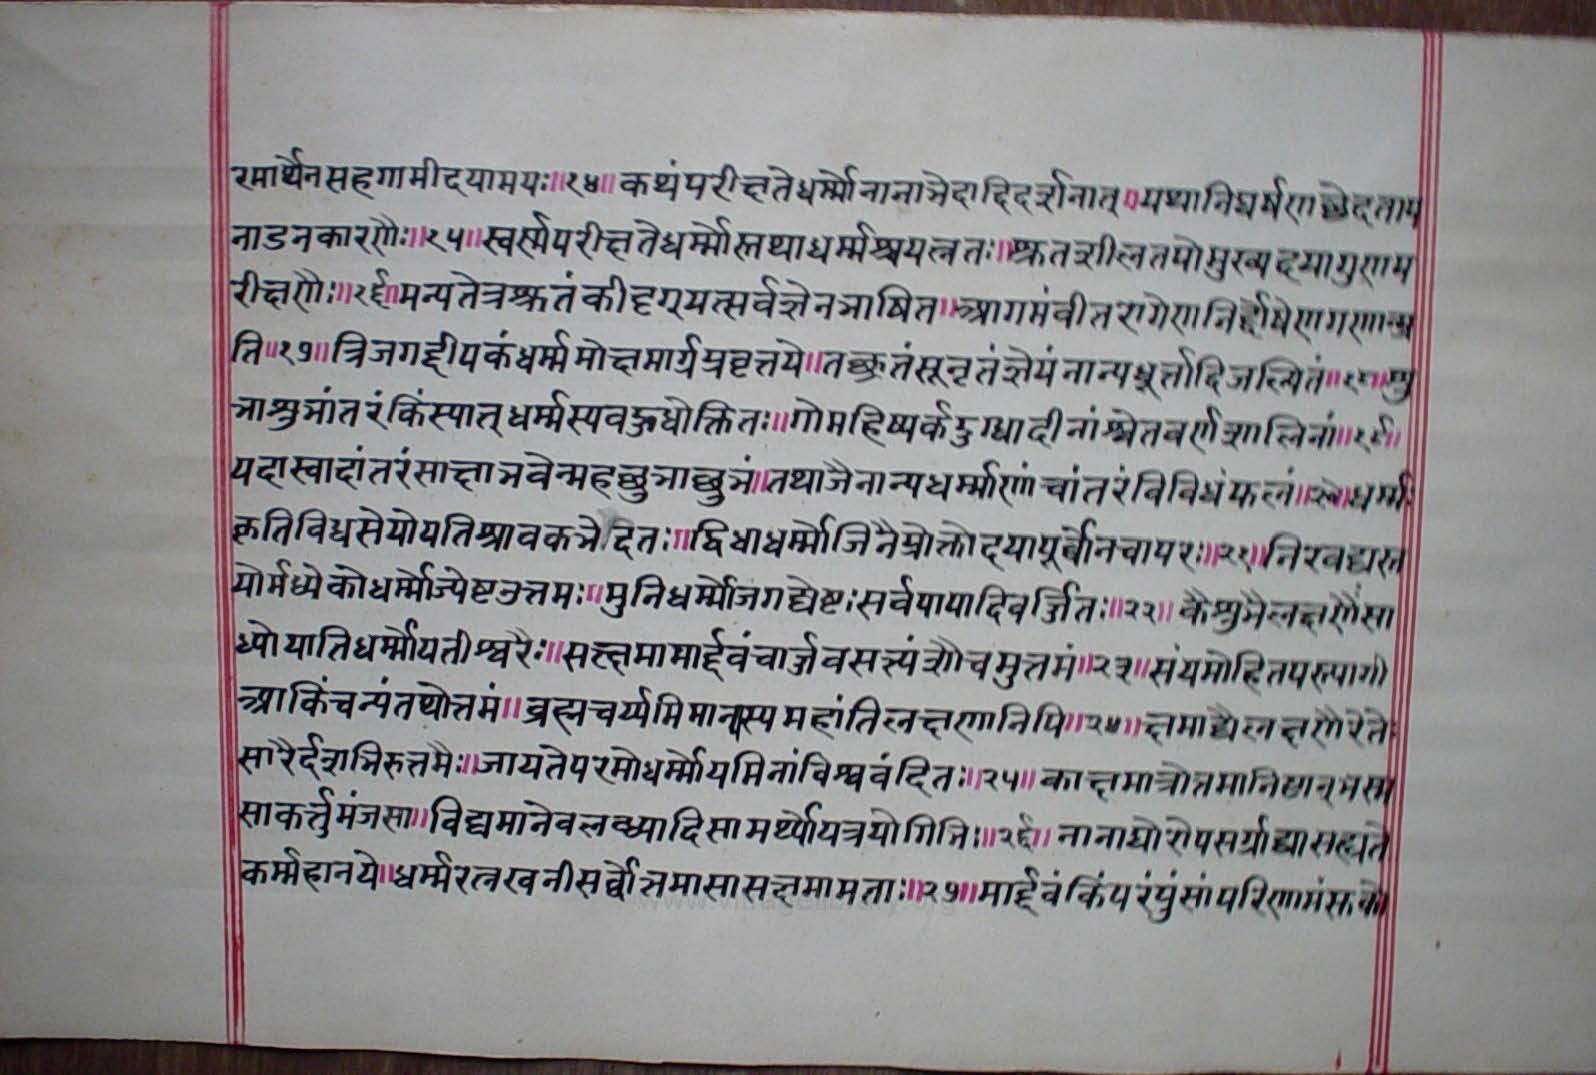 रमार्थैनसहगामीदयामयः॥१४॥ कथंपरीक्षतेधर्म्मोनानाभेदादिदर्शनात्॥यथानिघर्षणाछेदताप
नाडनकारणैः॥१५॥स्वर्स्मपरीक्षतेधर्म्मोस्तथाधर्म्मश्चयत्नतः॥श्रुतशीलतपोमुख्यदयागुणप
रीक्षणैः॥१६॥मन्यतेत्रश्रुतंकीदृग्यत्सर्वज्ञेनभाषित॥आगमंवीतरागेणनिर्द्दोषेण
ति॥१७॥त्रिजगद्दीपकंधर्म्ममोक्षमार्गप्रवृत्तये॥तच्छ्रुतंसूनृतंज्ञेयंनान्यधूर्त्तादिजल्पितं॥१८॥शु
भाशुभांतरंकिंस्यात्धर्म्मस्यवहुधोक्तितः॥गोमहिष्यर्कदुग्धादीनांश्वेतवर्णशालिनां॥१९॥
यदास्वादांतरंसाक्षाभवेन्महछुभाछुभं॥तथाजैनान्यधर्म्माणांचांतरंविविधंफलं॥२०॥धर्म्मः
कतिविधसेयोयतिश्रावकभेदितः॥द्विधाधर्म्मोजिनैप्रोक्तोदयापूर्वोनचापरः॥२१॥निरवद्यस्त
योर्मध्येकोधर्म्मोज्येष्टउत्तमः॥मुनिधर्म्मोजगद्येष्टःसर्वपापादिवर्ज्जितः॥२२॥ कैशुभैलक्षणैसा
ध्योयातिधर्म्मोयतीश्वरैः॥सत्क्षमामार्द्दवंचार्ज्जवसत्यंशौचमुत्तमं॥२३॥संयमोहितपस्त्यागो
आकिंचन्यंतथोत्तमं॥ब्रह्मचर्य्यमिमान्यस्यमहांतिलक्षणानिपि॥२४॥क्षमाद्यैलक्षणैरेतेः
सारैर्दशभिरुत्तमैः॥जायतेपरमोधर्म्मोयमिनांविश्ववंदितः॥२५॥काक्षमात्रोत्तमानिघान्भस्म
साकर्त्तुमंजसा॥विद्यमानेवलव्ध्यादिसामर्थ्योयत्रयोगिभिः॥२६॥ नानाघोरोपसर्गाद्यासह्यते
कर्म्महानये॥धर्म्मरत्नखनीसर्व्वोत्तमासासत्क्षमामताः॥२७॥मार्द्दवंकिंपरंपुंसांपरिणामं